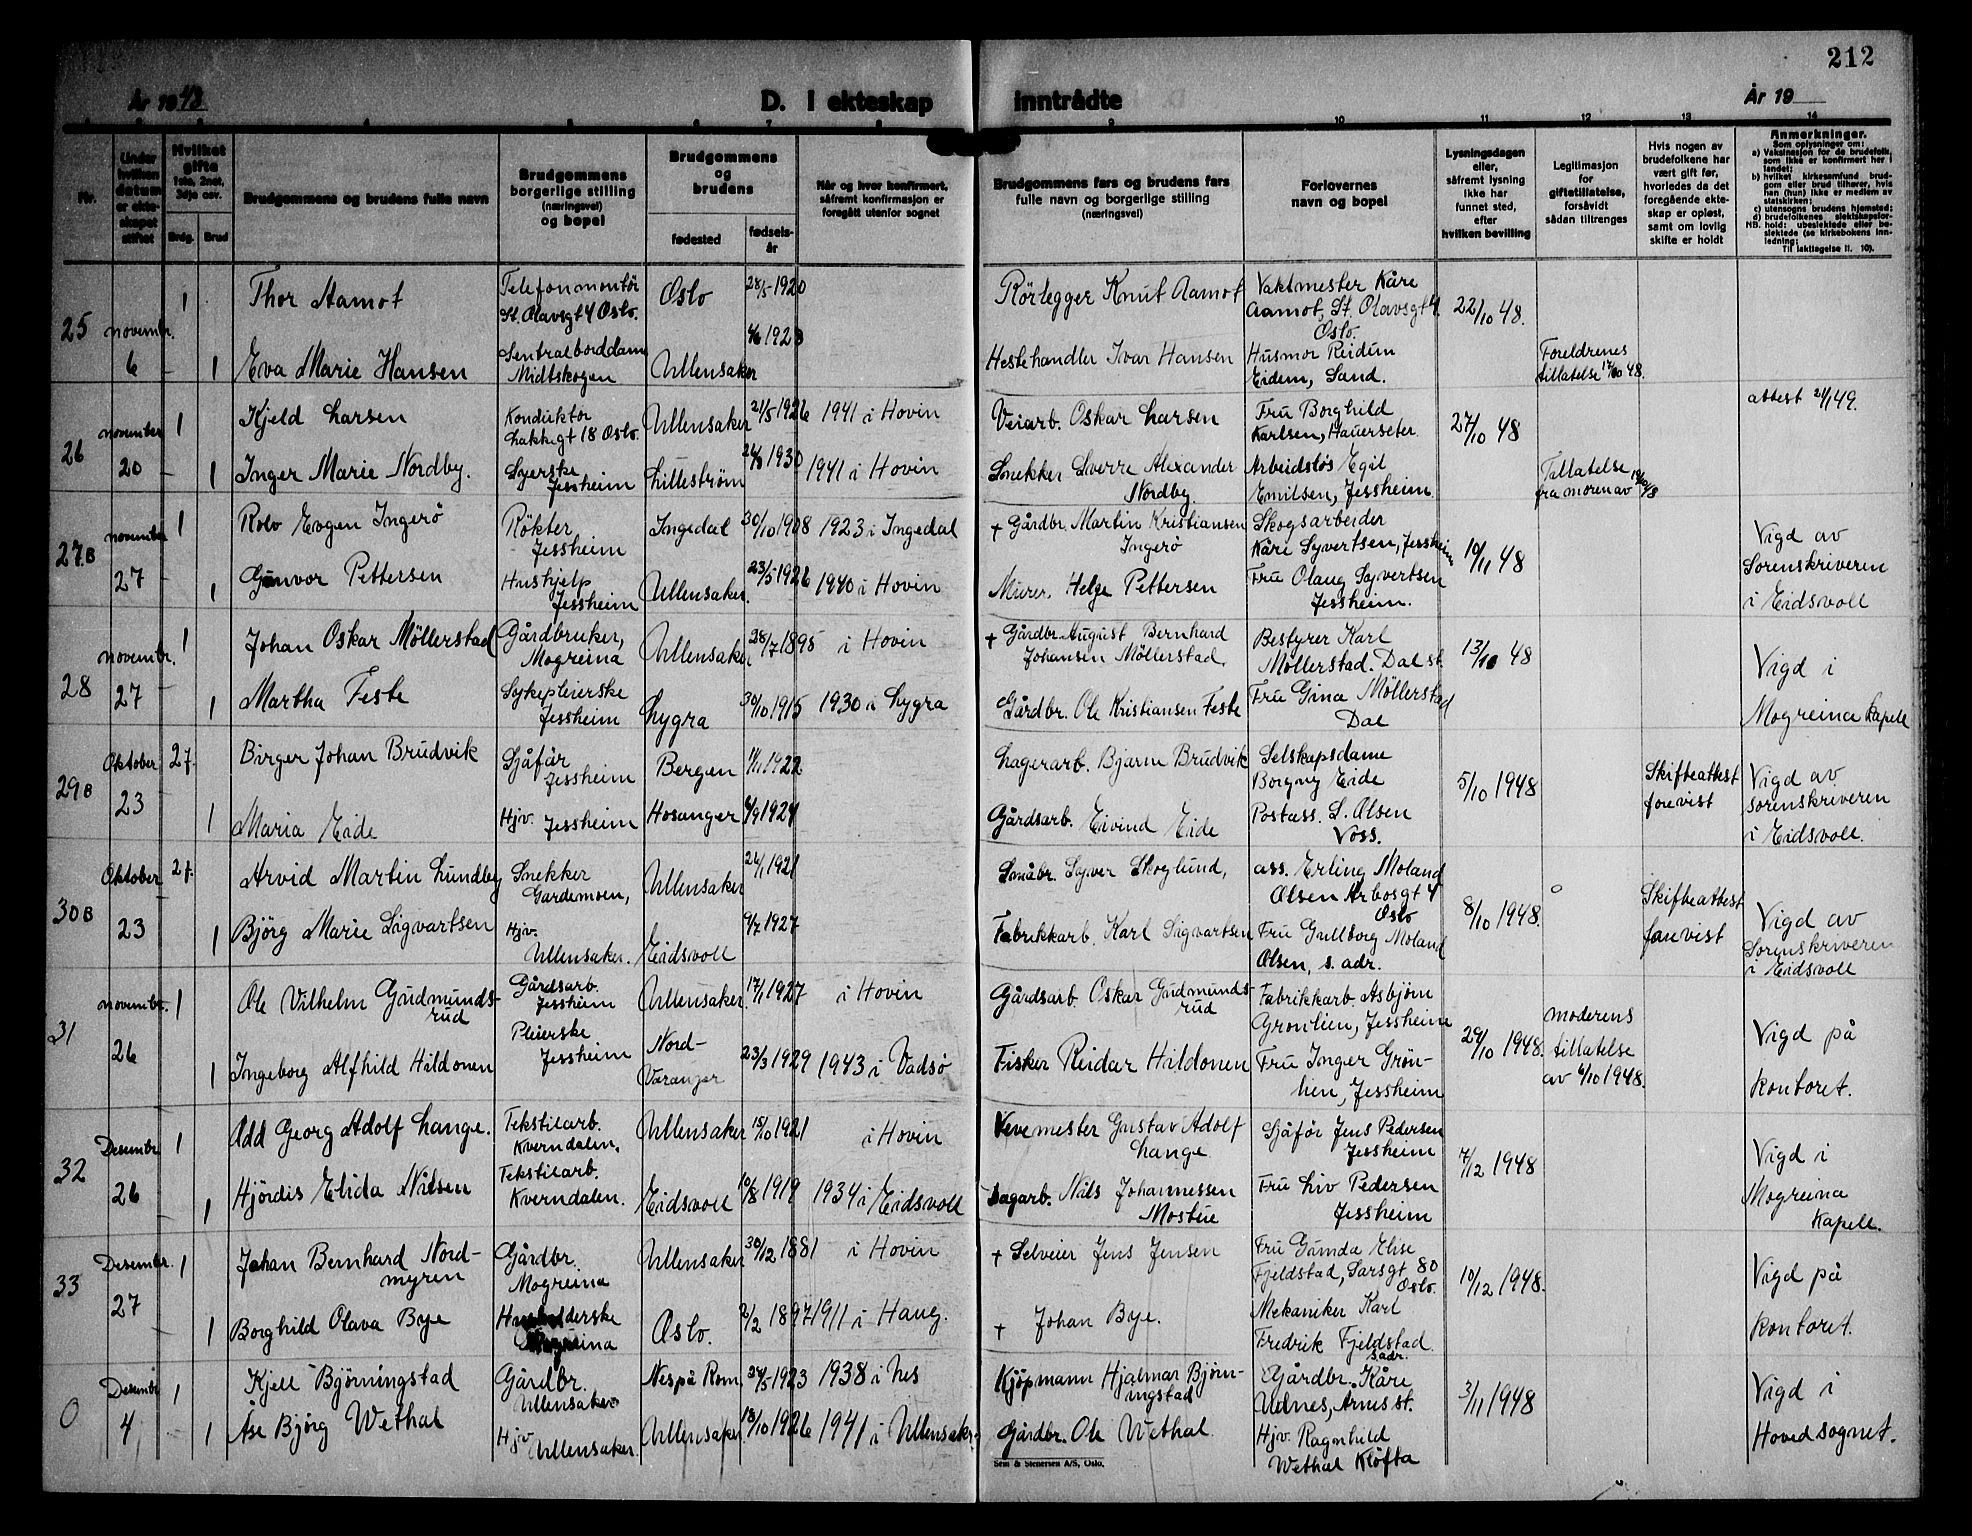 212
År 1948
D. I ekteskap inntrådte
År 19
1 2 3 4 5 6 7 8 9 10 11 12 13 14
Nr.
Under hvilken datum er ekteskapet stiftet
Hvilket gifte 1ste, 2net, 3dje osv.
Brdg. Brud
Brudgommens og brudens fulle navn
Brudgommens borgerlige stilling (næringsvei) og bopel
Brudgommens og brudens
fødested
fødselsår
Når og hvor konfirmert, såfremt konfirmasjon er foregått utenfor sognet
Brudgommens fars og brudens fars fulle navn og borgerlige stilling (næringsvei)
Forlovernes navn og bopel
Lysningsdagen eller, såfremt lysning ikke har funnet sted, efter hvilken bevilling
Legitimasjon for giftetillatelse, forsåvidt sådan tiltrenges
Hvis nogen av brudefolkene har vært gift før, hvorledes da det foregående ekteskap er opløst, samt om lovlig skifte er holdt
Anmerkninger.
Som oplysninger om:
a) Vaksinasjon for de brudefolk, som ikke er konfirmert her i landet;
b) hvilket kirkesamfund brudgom eller brud tilhører, hvis han (hun) ikke er medlem av statskirken;
c) utensogns brudens hjemsted;
d) brudefolkenes slektskapsforhold: ubeslektede eller beslektede (se kirkebokens innledning;
NB. Til iakttagelse II. 10).
25 novembr. 6
1 Thor Aamot Telefonmontör St. Olavsgt 4 Oslo. Oslo 28/5-1920 Rörlegger Knut Aamot Vaktmester Kåre Aamot, St. Olavsgt 4. Oslo. 22/10 48.
1 Eva Marie Hansen Sentralborddame Midtskogen Ullensaker Hestehandler Ivar Hansen Husmor Reidun Eidem, Sand. Foreldrenes tillatelse 48.
26 november 20
1 Kjeld Larsen Konduktör 18 Oslo. Ullensaker 21/5 1926 1941 i Hovin Veiarb. Oskar Larsen Fru Borghild Karlsen, Hauerseter. 27/10 48 attest 21/1 49.
1 Inger Marie Nordby. Syerske Jessheim Lilleström 1930 1941 i Hovin Snekker Sverre Alexander Nordby. Arbeidslös Egil Emilsen, Jessheim Tillatelse fra moren av
27B november 27
1 Rolv Evgen Ingerö Rökter Jessheim Ingedal 30/10 1908 1923 i Ingedal + Gårdbr. Martin Kristiansen Ingerö Skogsarbeider Kåre Syvertsen, Jessheim 10/11 48 Vigd av Sorenskriveren i Eidsvoll
1 Gunvor Pettersen Hushjelp Jessheim Ullensaker. 23/5 1926 1940 i Hovin Murer. Helge Pettersen Fru Olaug Syvertsen Jessheim.
28 novembr. 27
1 Johan Oskar Möllerstad Gårdbruker, Mogreina Ullensaker 28/7 1895 i Hovin + Gårdbr. August Bernhard Johansen Möllerstad. Bestyrer Karl Möllerstad. Dal st. 48 Vigd i Mogreina Kapell
1 Martha Feste Sykepleierske Jessheim Lygra 30/10 1915 1930 i Lygra Gårdbr. Ole Kristiansen Feste Fru Gina Möllerstad Dal
29B Oktober 23
2 f. Birger Johan Brudvik Sjåför Jessheim Bergen 1922 Lagerarb. Bjarne Brudvik Selskapsdame Borgny Eide 5/10 1948 Skifteattest forevist Vigd av sorenskriveren i Eidsvoll.
1 Maria Eide Hjv. Jessheim Hosanger 1924 Gårdsarb. Eivind Eide Postass. S. Olsen Voss.
30B Oktober 23
2 f. Arvid Martin Lundby Snekker Gardemoen, Ullensaker 24/1 1921 Småbr. Syver Skoglund, ass. Erling Moland Olsen Arbosgt 4 Oslo 8/10 1948. Skifteattest forevist Vigd av Sorenskriveren i Eidsvoll
1 Björg Marie Sigvartsen Hjv. Ullensaker. Eidsvoll 9/7 1927 Fabrikkarb. Karl Sigvartsen Fru Gullborg Moland Olsen, s. adr.
31 novembr. 26
1 Ole Vilhelm Gudmundsrud Gårdsarb. Jessheim Ullensaker 17/1 1927 i Hovin Gårdsarb. Oskar Gudmundsrud Fabrikkarb. Asbjörn Grönlien, Jessheim 29/10 1948. moderens tillatelse av 6/10 1948. Vigd på kontoret.
1 Ingeborg Alfhild Hildonen Pleierske Jessheim Nord-Varanger 23/3 1929 1943 i Vadsö Fisker Reidar Hildonen Fru Inger Grönlien, Jessheim
32 Desembr. 26
1 Odd Georg Adolf Lange. Tekstilarb. Kverndalen. Ullensaker 15/10 1921 i Hovin Vevemester Gustav Adolf Lange Sjåför Jens Pedersen Jessheim 7/12 1948 Vigd i Mogreina kapell.
1 Hjördis Elida Nilsen Tekstilarb. Kverndalen. Eidsvoll 10/8 1919 1934 i Eidsvoll Sagarb. Nils Johannessen Mostue Fru Liv Pedersen Jessheim
33 Desembr. 27
1 Johan Bernhard Nordmyren Gårdbr. Mogreina Ullensaker 30/12 1881 i Hovin + Selveier Jens Jensen Fru Gunda Elise Fjeldstad, Sarsgt 80 Oslo. 10/12 1948. Vigd på kontoret.
1 Borghild Olava Bye Mogreina Oslo. 2/2 1897 1911 i Haug. + Johan Bye. Mekaniker Karl Fredrik Fjeldstad. sadr.
0 Desembr. 4
1 Kjell Björningstad Gårdbr. Ullensaker Nes på Rom. 1923 1938 i Nes Kjöpmann Hjalmar Björningstad Gårdbr. Kåre Udnes, Årnes st. 3/11 1948 Vigd i Hovedsognet.
1 Åse Björg Wethal Hjv. Ullensaker. Ullensaker 18/10 1926 1941 i Ullensaker. Gårdbr. Ole Wethal. Hjv. Ragnhild Wethal Klöfta
Sem & Stenersen A/S, Oslo.